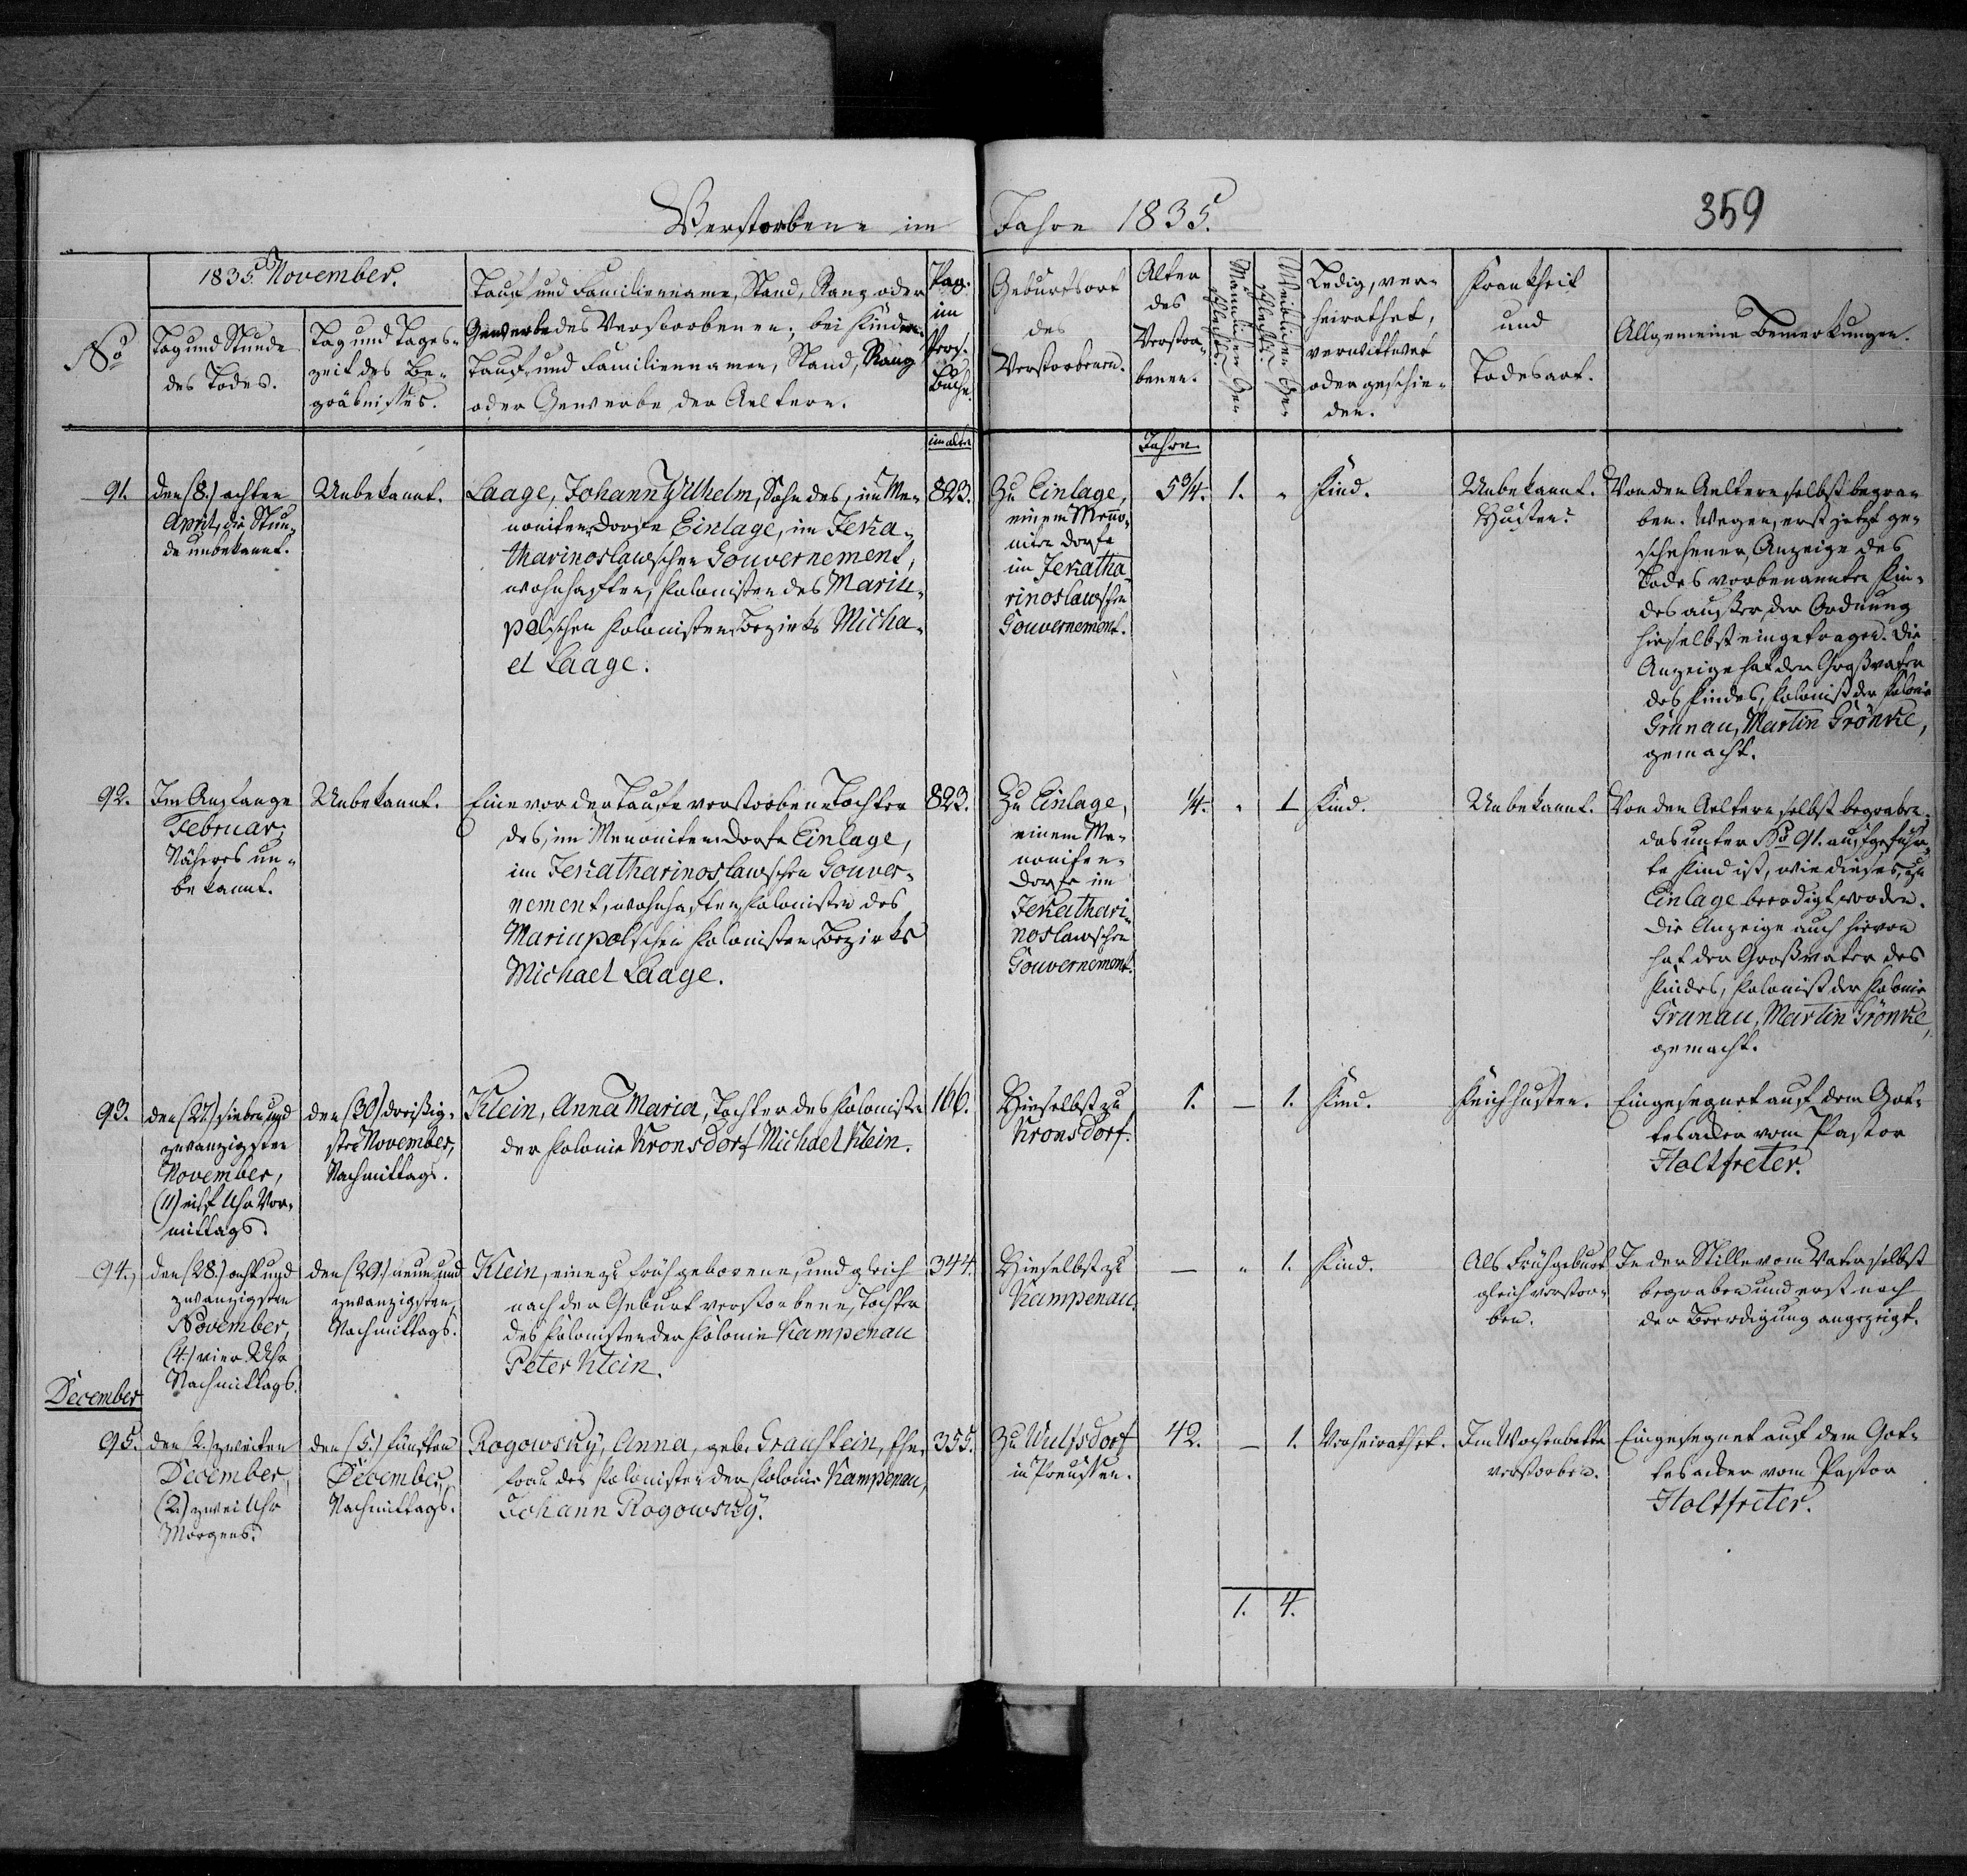 Verstorbene im Jahre 1835.
359
No
1835. November.
Tag und Stunde
des Todes.
Tag und Tages-
zeit des Be-
gräbnisses.
Tauf und Familienname, Stand, Rang oder
Gewerbe des Verstorbenen; bei Kindern
Tauf- und Familiennamen, Stand, Rang
oder Gewerbe der Aeltern.
Pag.
im
Pers.
Buche.
Geburtsort
des
Verstorbenen.
Alter
des
Verstor-
benen.
Männlichen Ge-
schlechts.
Weiblichen Ge-
schlechts.
Ledig, ver-
heirathet,
verwittwet
oder geschie-
den.
Krankheit
und
Todesart.
Allgemeine Bemerkungen.
im alten
Jahre
91.
den (8.) achten
April, die Stun-
de unbekannt.
Unbekannt.
Laage, Johann Wilhelm, Sohn des, im Me-
noniten Dorfe Einlage, im Jeka-
tharinoslawschen Gouvernement,
wohnhaften, Kolonisten des Mariu-
polschen Kolonisten Bezirks Micha-
el Laage.
823.
Zu Einlage,
einem Meno-
niten Dorfe
im Jekatha-
rinoslawschen
Gouvernement.
5¾.
1.
"
Kind.
Unbekannt.
Husten?
Von den Aeltern selbst begra-
ben. Wegen, erst jetzt ge-
schehener, Anzeige des
Todes vorbenannten Kin-
des außer der Ordnung
hieselbst eingetragen. Die
Anzeige hat der Großvater
des Kindes, Kolonist der Kolonie
Grunau, Martin Grönke,
gemacht.
92.
Im Anfange
Februar,
Näheres un-
bekannt.
Unbekannt.
Eine vor der Taufe verstorbene Tochter
des, im Menoniten Dorfe Einlage,
im Jekatharinoslawschen Gouver-
nement, wohnhaften Kolonisten des
Mariupolschen Kolonisten Bezirks
Michael Laage.
823.
Zu Einlage,
einem Me-
noniten-
Dorfe im
Jekathari-
noslawschen
Gouvernement.
¼.
"
1
Kind.
Unbekannt.
Von den Aeltern selbst begraben.
das unter No 91. aufgeführ-
te Kind ist, wie dieses, zu
Einlage beerdigt worden.
Die Anzeige auch hievon
hat der Großvater des
Kindes, Kolonist der Kolonie
Grunau, Martin Grönke,
gemacht.
93.
den (27.) sieben und
zwanzigsten
November,
(11) eilf Uhr Vor-
mittags.
den (30.) dreißig-
sten November,
Nachmittags.
Klein, Anna Maria, Tochter des Kolonisten
der Kolonie Kronsdorf Michael Klein.
166.
Hieselbst zu
Kronsdorf.
1.
—
1.
Kind.
Keichhusten.
Eingesegnet auf dem Got-
tesacker vom Pastor
Holtfreter.
94.
den (28.) acht und
zwanzigsten
November,
(4.) vier Uhr
Nachmittags.
den (29.) neun und
zwanzigsten,
Nachmittags.
Klein, eine zu früh geborene, und gleich
nach der Geburt verstorbene, Tochter
des Kolonisten der Kolonie Kampenau
Peter Klein.
344.
Hieselbst zu
Kampenau.
—
"
1.
Kind.
Als Frühgeburt
gleich verstor-
ben.
In der Stille vom Vater selbst
begraben und erst nach
der Beerdigung angezeigt.
December
95.
den (2.) zweiten
December,
(2.) zwei Uhr
Morgens.
den (5.) fünften
December,
Nachmittags.
Rogowsky, Anna, geb. Graustein, Ehe-
frau des Kolonisten der Kolonie Kampenau,
Johann Rogowsky.
355.
Zu Wulfsdorf
in Preussen.
42.
—
1.
Verheirathet.
Im Wochenbette
verstorben.
Eingesegnet auf dem Got-
tesacker vom Pastor
Holtfreter.
1. 4.